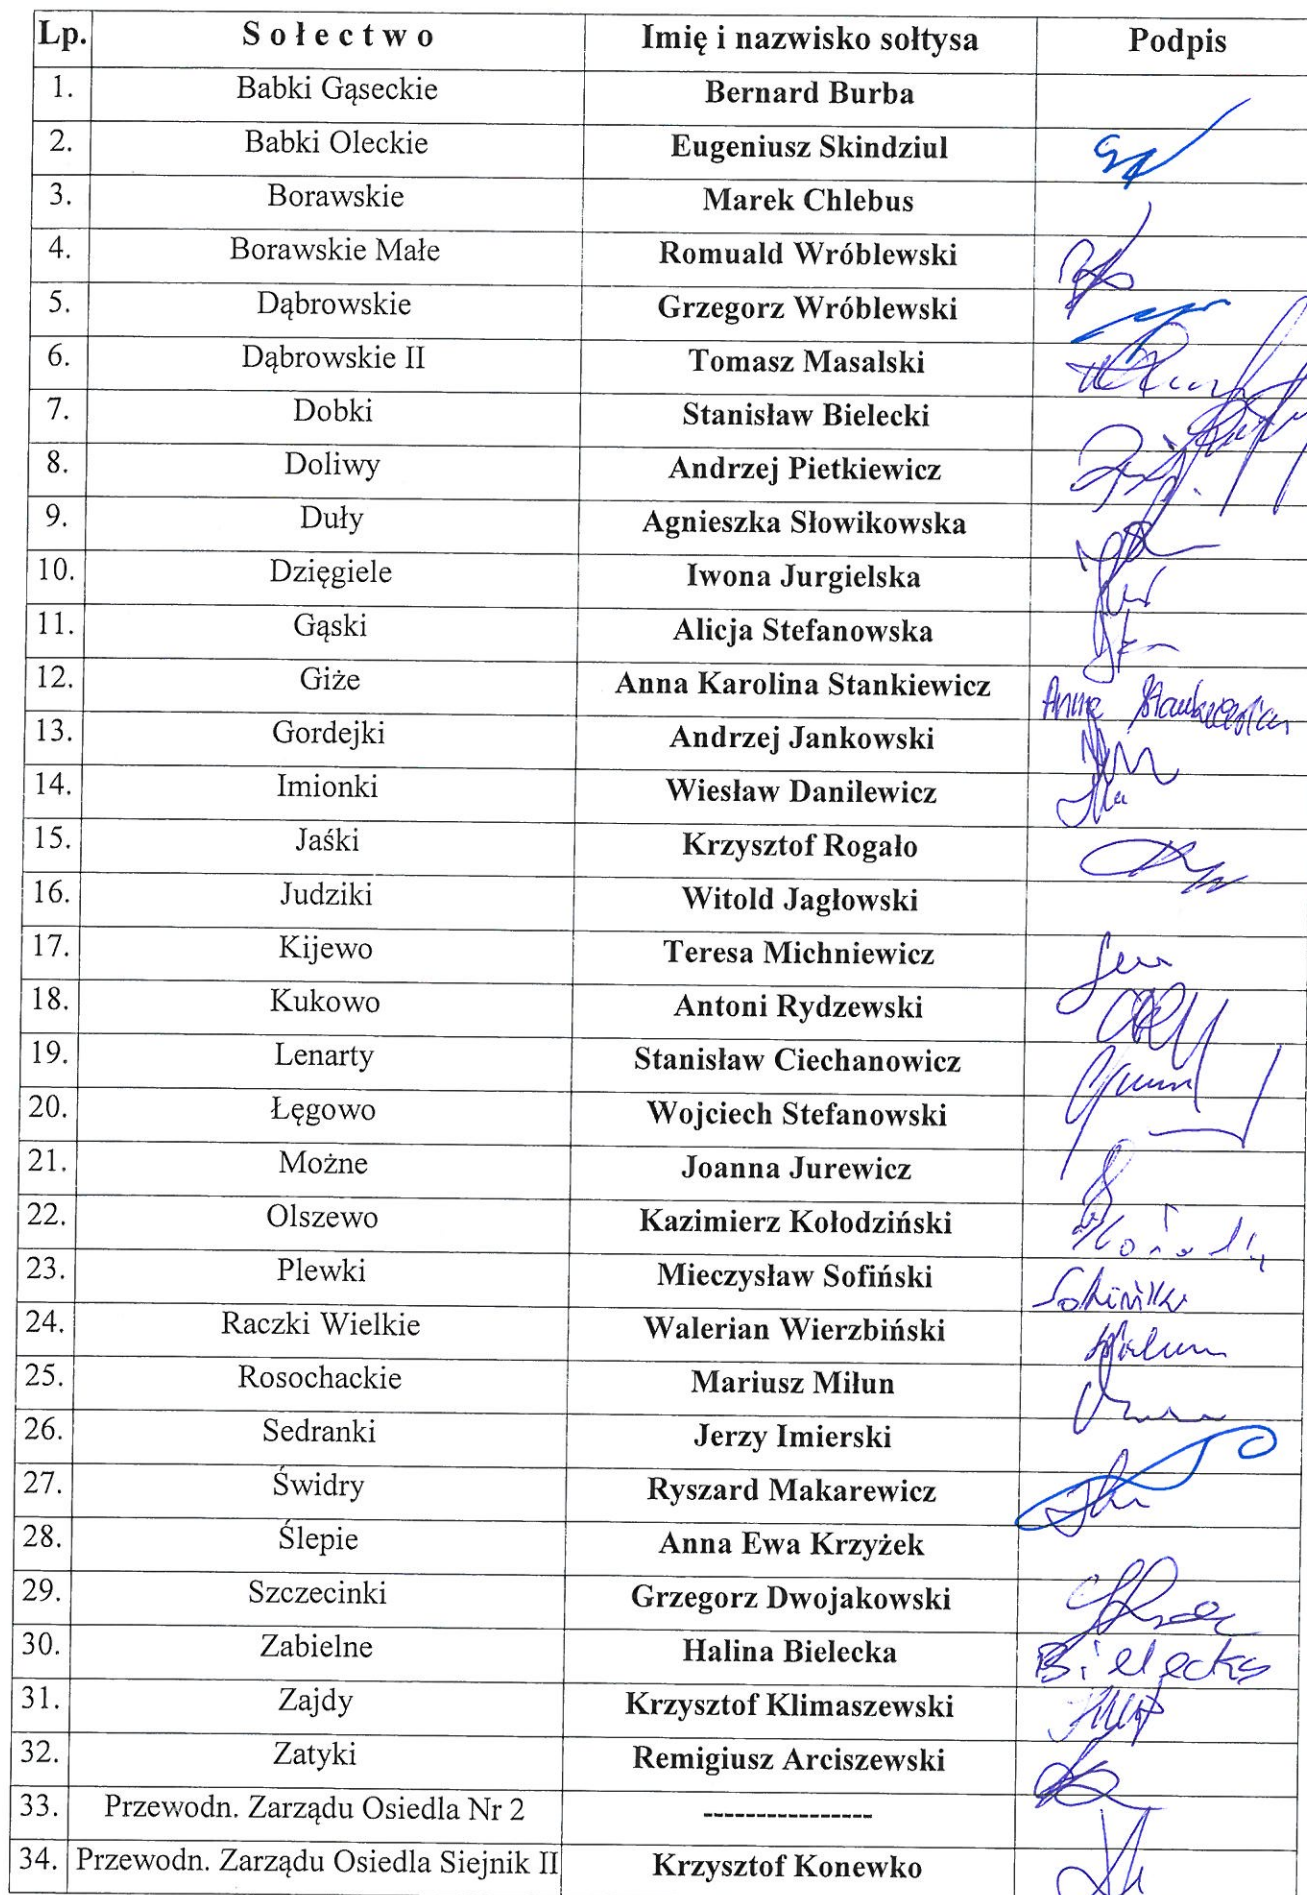 Lp. S o ł e c t w o Imię i nazwisko sołtysa Podpis
1. Babki Gąseckie Bernard Burba
2. Babki Oleckie Eugeniusz Skindziul
3. Borawskie Marek Chlebus
4. Borawskie Małe Romuald Wróblewski
5. Dąbrowskie Grzegorz Wróblewski
6. Dąbrowskie II Tomasz Masalski
7. Dobki Stanisław Bielecki
8. Doliwy Andrzej Pietkiewicz
9. Duły Agnieszka Słowikowska
10. Dzięgiele Iwona Jurgielska
11. Gąski Alicja Stefanowska
12. Giże Anna Karolina Stankiewicz Anna Stankiewicz
13. Gordejki Andrzej Jankowski
14. Imionki Wiesław Danilewicz
15. Jaśki Krzysztof Rogało
16. Judziki Witold Jagłowski
17. Kijewo Teresa Michniewicz
18. Kukowo Antoni Rydzewski
19. Lenarty Stanisław Ciechanowicz
20. Łęgowo Wojciech Stefanowski
21. Możne Joanna Jurewicz
22. Olszewo Kazimierz Kołodziński
23. Plewki Mieczysław Sofiński
24. Raczki Wielkie Walerian Wierzbiński
25. Rosochackie Mariusz Miłun
26. Sedranki Jerzy Imierski
27. Świdry Ryszard Makarewicz
28. Ślepie Anna Ewa Krzyżek
29. Szczecinki Grzegorz Dwojakowski
30. Zabielne Halina Bielecka Bielecka
31. Zajdy Krzysztof Klimaszewski
32. Zatyki Remigiusz Arciszewski
33. Przewodn. Zarządu Osiedla Nr 2 ----------------
34. Przewodn. Zarządu Osiedla Siejnik II Krzysztof Konewko